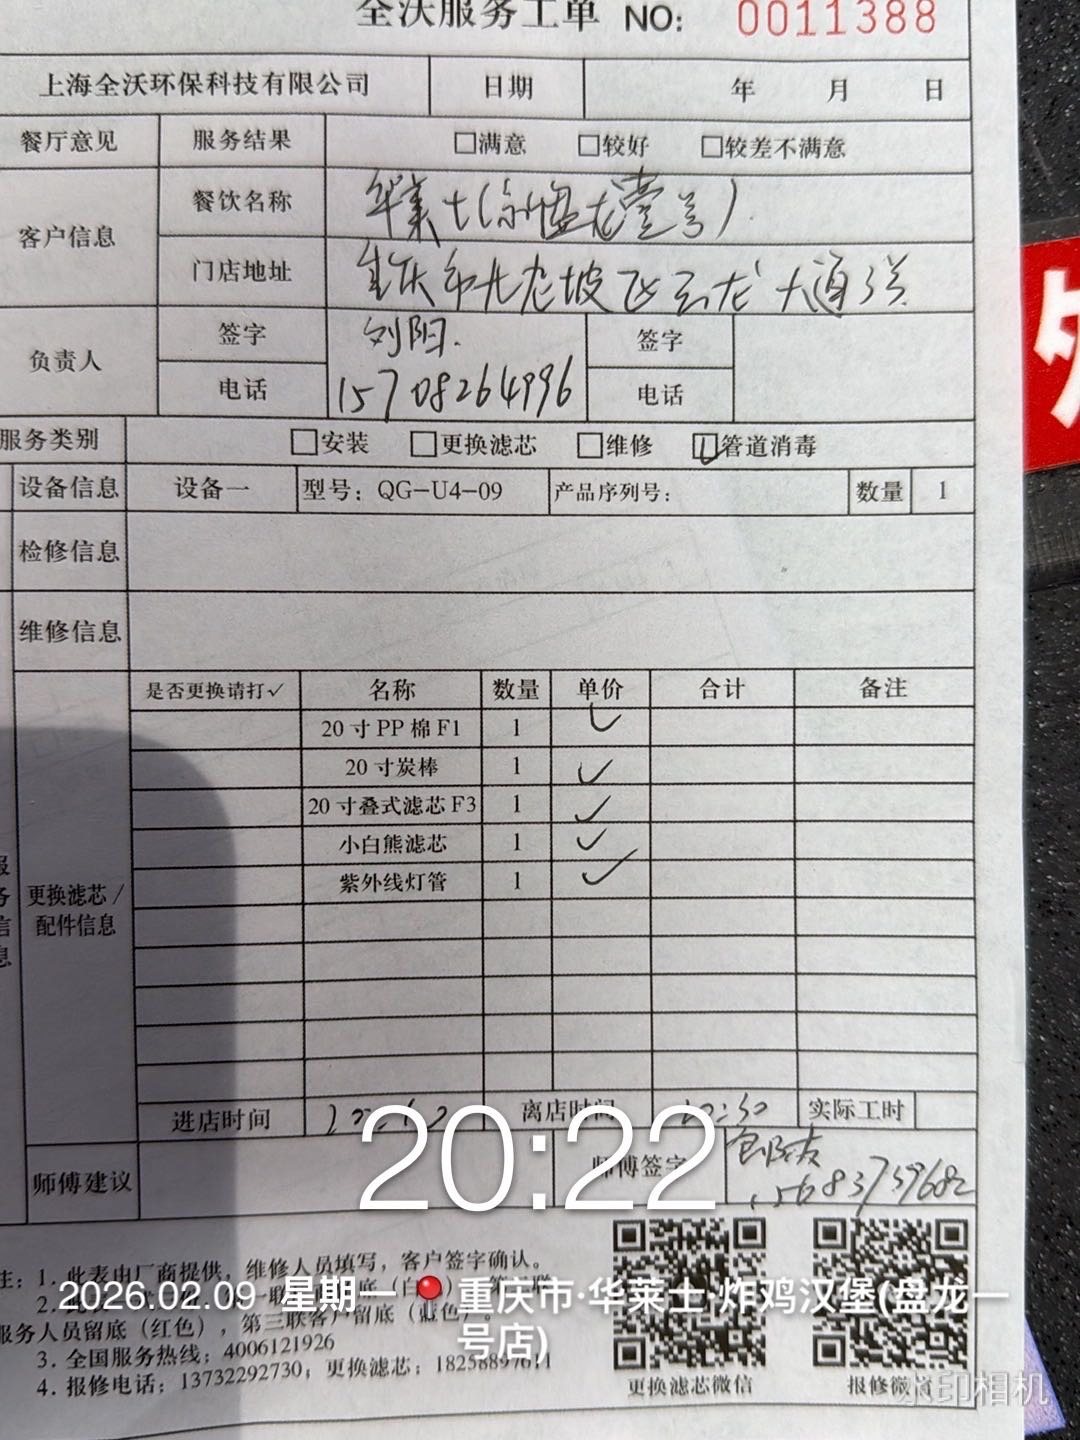 全沃服务工单 NO: 0011388
上海全沃环保科技有限公司 日期 年 月 日
餐厅意见 服务结果 □满意 □较好 □较差不满意
客户信息 餐饮名称 华莱士(盘龙壹号)
门店地址 重庆市九龙坡区云龙大道
负责人 签字 刘阳 签字
电话 15708264996 电话
服务类别 □安装 □更换滤芯 □维修 ☑管道消毒
设备信息 设备一 型号：QG-U4-09 产品序列号： 数量 1
检修信息
维修信息
是否更换请打✓ 名称 数量 单价 合计 备注
20寸PP棉F1 1 ✓
20寸炭棒 1 ✓
20寸叠式滤芯F3 1 ✓
小白熊滤芯 1 ✓
紫外线灯管 1 ✓
更换滤芯/
配件信息
进店时间 离店时间 实际工时
20:22
师傅建议 师傅签字
15683759682
注：1. 此表由厂商提供，维修人员填写，客户签字确认。
2.
2026.02.09 星期一 重庆市·华莱士·炸鸡汉堡(盘龙一
号店)
服务人员留底（红色），第三联客户留底（蓝色）。
3. 全国服务热线：4006121926
4. 报修电话：13732292730；更换滤芯：
更换滤芯微信 报修微信
水印相机